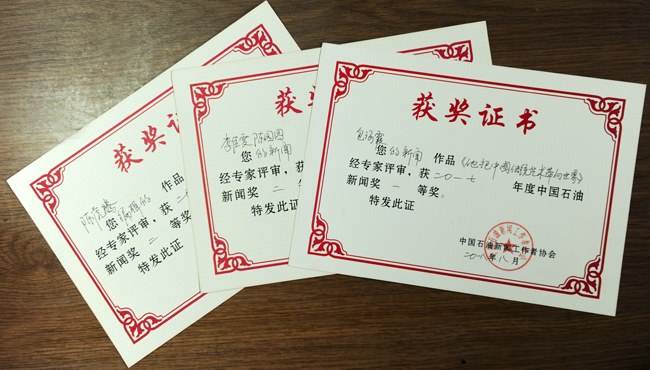 获奖证
作品
您编辑的
经专家评审，获二
新闻奖 二 等奖
特发此证
获奖
李佳雯 陈圆圆
您 的新闻
经专家评审，获
新闻奖 二
特发
获奖证书
您 的新闻 作品
经专家评审，获 二〇一七 年度中国石油
新闻奖 一 等奖。
特发此证
中国石油新闻工作者协会
二〇一八年八月